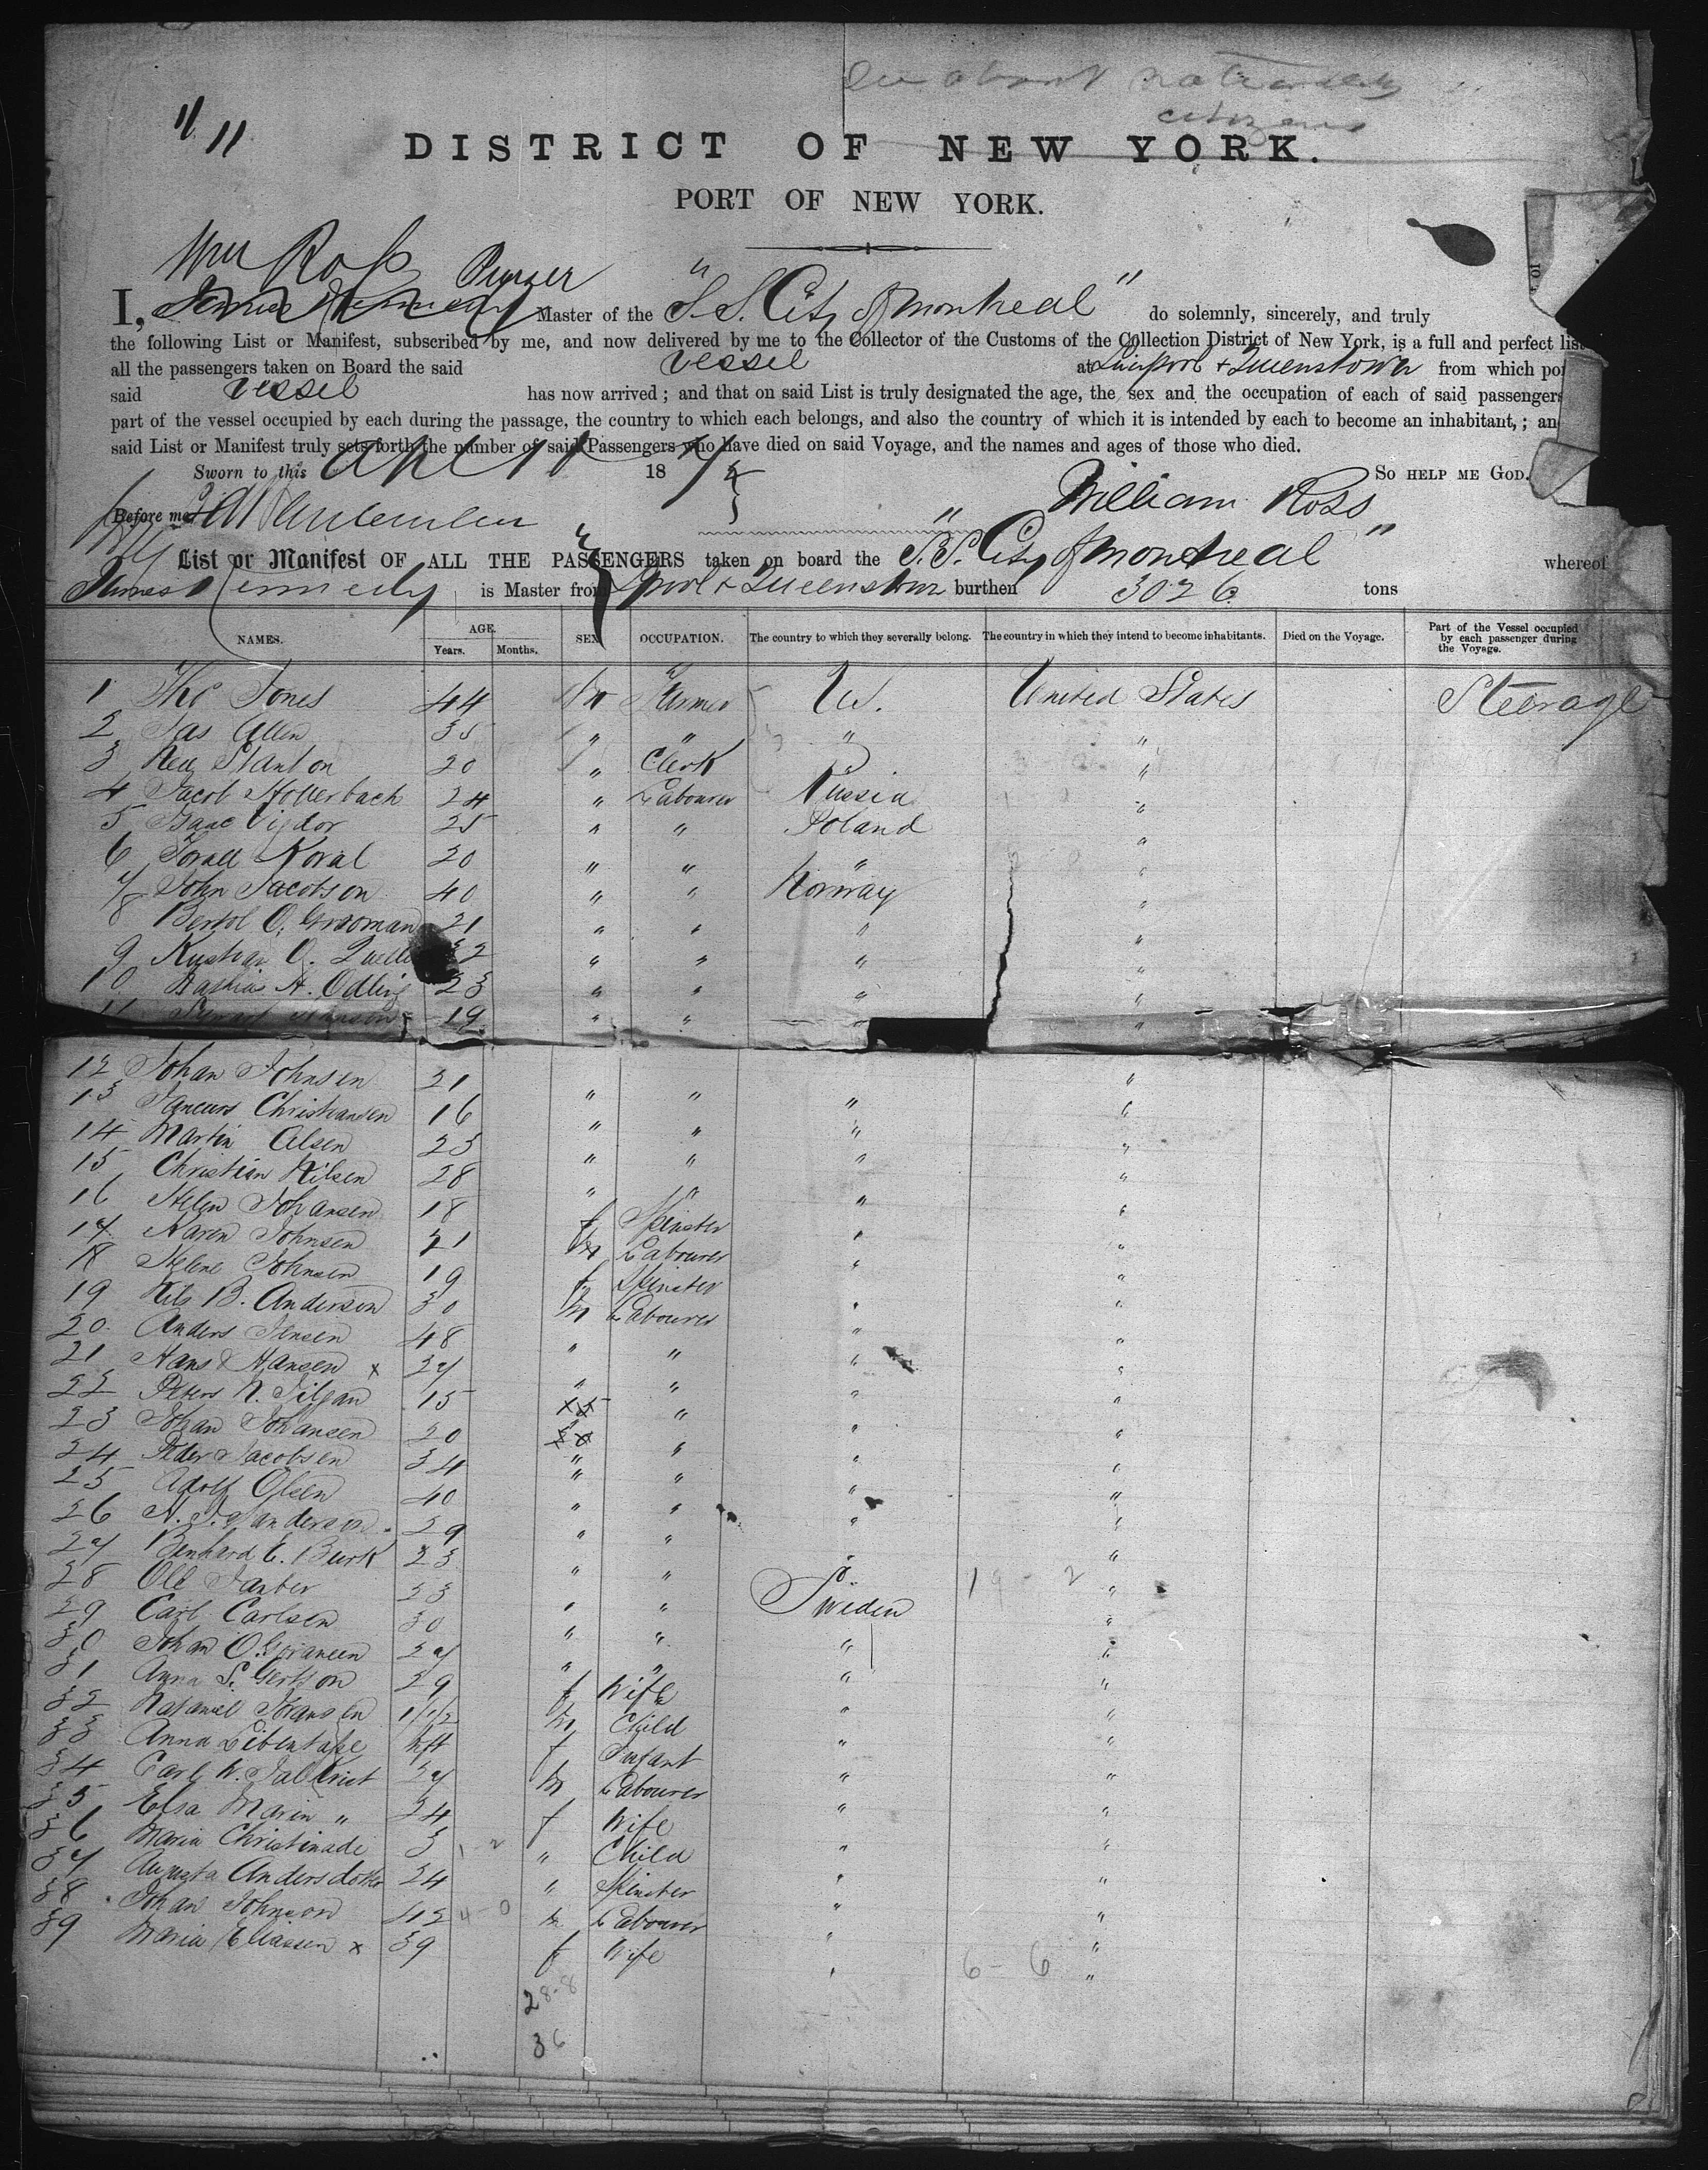 11 11
See about
citizens
DISTRICT OF NEW YORK.
PORT OF NEW YORK.
Wm Ross Purser
I, James Kennedy Master of the "S. S. City of Montreal" do solemnly, sincerely, and truly
the following List or Manifest, subscribed by me, and now delivered by me to the Collector of the Customs of the Collection District of New York, is a full and perfect list
all the passengers taken on Board the said vessel at Liverpool + Queenstown from which por
said vessel has now arrived; and that on said List is truly designated the age, the sex and the occupation of each of said passengers
part of the vessel occupied by each during the passage, the country to which each belongs, and also the country of which it is intended by each to become an inhabitant,; an
said List or Manifest truly sets forth the number of said Passengers who have died on said Voyage, and the names and ages of those who died.
Sworn to this 18 SO HELP ME GOD.
Before me William Ross
List or Manifest OF ALL THE PASSENGERS taken on board the "S. S. City of Montreal" whereof
James Kennedy is Master from Lpool + Queenstown burthen 3026 tons
NAMES. AGE. Years. Months. SEX. OCCUPATION. The country to which they severally belong. The country in which they intend to become inhabitants. Died on the Voyage. Part of the Vessel occupied by each passenger during the Voyage.
1 Tho Jones 44 m Farmer U.S. United States Steerage
2 Jas Allen 35 " " " "
3 Stanton 20 " Clerk "
4 Jacob Hollerbach 24 " Labourer Russia "
5 Isaac Vigdor 25 " " Poland "
6 Koral 20 " " " "
7 John Jacobson 40 " " Norway "
8 O. Grooman 21 " " " "
9 O. 22 " " " "
10 A. Odling 23 " " " "
11 Hansen 19 " " "
12 Johan Johnsen 21 " " " "
13 Christiansen 16 " " " "
14 Martin Olsen 25 " " " "
15 Christian Nilsen 28 " " " "
16 Helen Johansen 18 f Spinster " "
17 Karen Johnsen 21 m Labourer " "
18 Helene Johnsen 19 f Spinster " "
19 Nils B. Anderson 30 m Labourer " "
20 Anders Jensen 48 " " " "
21 Hans Hansen x 27 " " " "
22 Peters N. 15 " " "
23 Johan Johansen 20 " " "
24 Peder Jacobsen 34 " " " "
25 Adolf Olsen 40 " " " "
26 A. J. Sanderson 29 " " " "
27 Benhard E. Burk 23 " " " "
28 Ole 23 " " " 19 - 2 "
29 Carl Carlsen 30 " " Sweden "
30 Johan O. 27 " " " "
31 Anna S. 29 f Wife " "
32 Johansen 1 1/2 m Child " "
33 Anna f Infant " "
34 Carl W. 27 m Labourer " "
35 Elsa Maria " 24 f Wife " "
36 Maria 3 1 - 2 " Child " "
37 Augusta Andersdotter 24 " Spinster " "
38 Johan Johnson 42 4 - 0 m Labourer " "
39 Maria Eliassen x 39 f Wife " 6 - 6 "
28-8
36